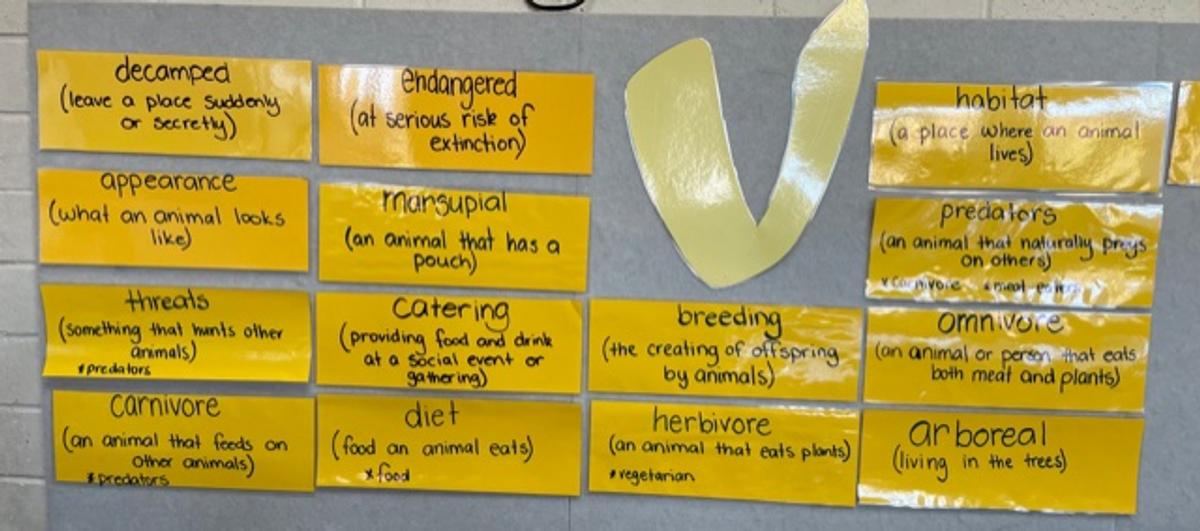 decamped
(leave a place suddenly
or secretly)
endangered
(at serious risk of
extinction)
V
habitat
(a place where an animal
lives)
appearance
(what an animal looks
like)
marsupial
(an animal that has a
pouch)
predators
(an animal that naturally preys
on others)
*carnivore *meat eater
threats
(something that hunts other
animals)
*predators
catering
(providing food and drink
at a social event or
gathering)
breeding
(the creating of offspring
by animals)
omnivore
(an animal or person that eats
both meat and plants)
carnivore
(an animal that feeds on
other animals)
*predators
diet
(food an animal eats)
*food
herbivore
(an animal that eats plants)
*vegetarian
arboreal
(living in the trees)